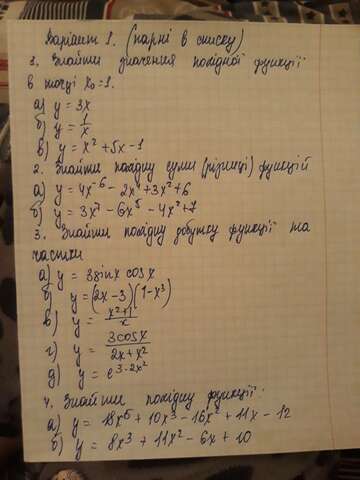 Варіант 1. (парні в списку)
1. Знайти значення похідної функції
в точці x₀=1.
а) y = 3x
б) y = 1/x
в) y = x² + 5x - 1
2. Знайти похідну суми (різниці) функцій
а) y = 4x⁻⁶ - 2x⁴ + 3x² + 6
б) y = 3x⁷ - 6x⁵ - 4x² + 7
3. Знайти похідну добутку функцій та
частки
а) y = 3sinx cosx
б) y = (2x - 3)(1 - x³)
в) y = (x² + 1)/x
г) y = 3cosx/(2x + x²)
д) y = e^(3-2x²)
4. Знайти похідну функції:
а) y = 18x⁵ + 10x³ - 16x² + 11x - 12
б) y = 8x³ + 11x² - 6x + 10